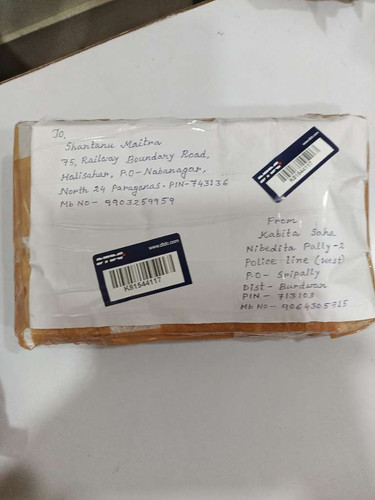 To,
Shantanu Maitra
75, Railway Boundary Road,
Halisahar, P.O- Nabanagar,
North 24 Paraganas. PIN-743136
Mb No- 9903259959
DTDC
K81544117
DTDC
www.dtdc.com
K81544117
From
Kabita Saha
Nibedita Pally-2
Police line (west)
P.O- Sripally
Dist- Burdwan
PIN- 713103
Mb No- 9064305915